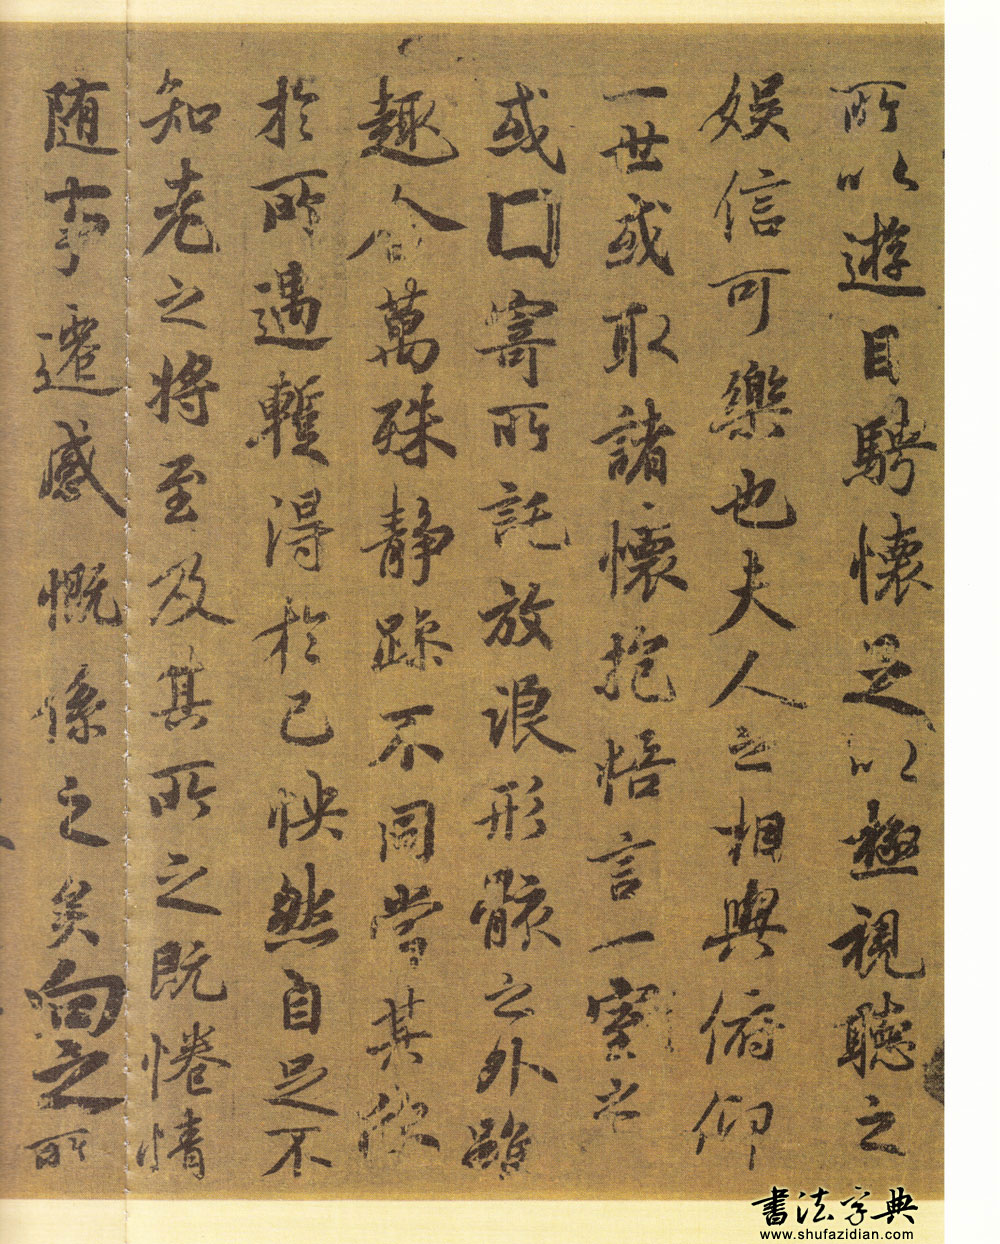 所以遊目騁懷足以極視聽之
娛信可樂也夫人之相與俯仰
一世或取諸懷抱悟言一室之
或囗寄所託放浪形骸之外雖
趣舍萬殊静躁不同當其欣
於所遇蹔得於己怏然自足不
知老之將至及其所之既惓情
随事遷感慨係之矣向之所
書法字典
www.shufazidian.com